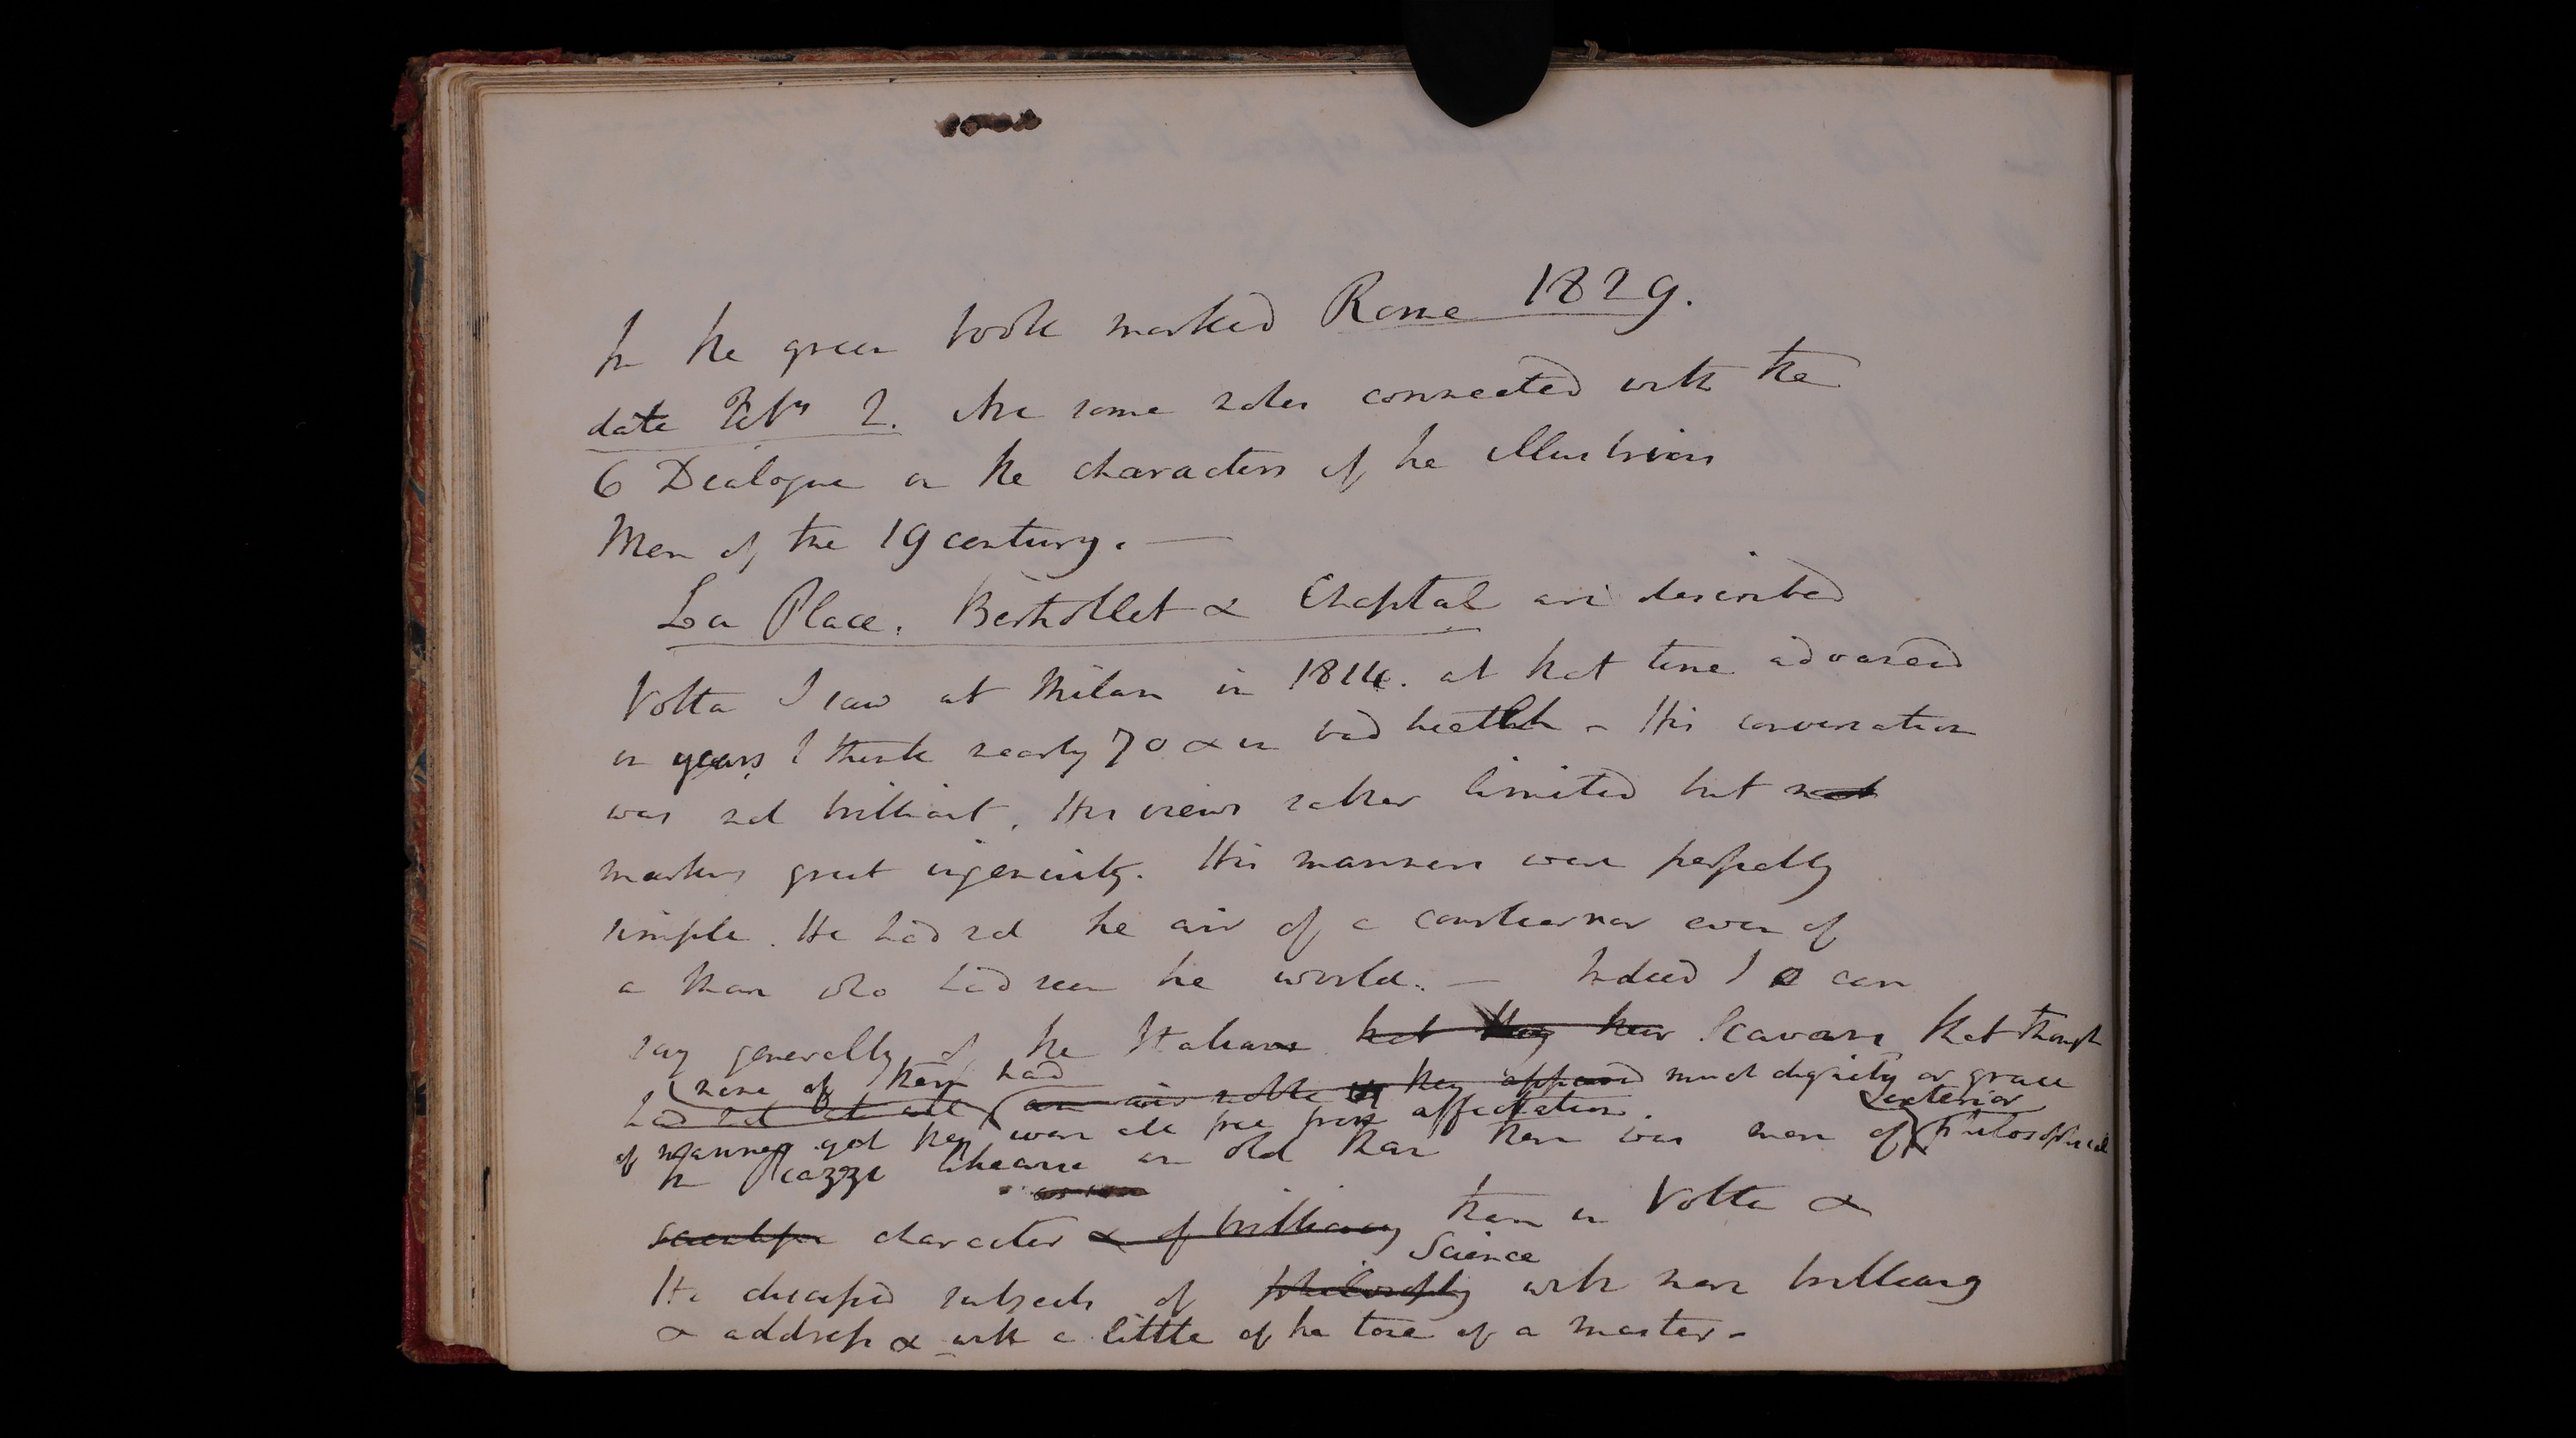 In the green book marked Rome 1829.
date Feby 2. Are some notes connected with the
6 Dialogue on the characters of the illustrious
Men of the 19 century. —
La Place. Berthollet & Chaptal are described
Volta I saw at Milan in 1814. at that time advanced
in years I think nearly 70 & in bad health - His conversation
was not brilliant. His views rather limited but not
marking great ingenuity. His manners were perfectly
simple. He had not the air of a courtier nor even of
a Man who had seen the world. — Indeed I can
say generally of the Italians that they their Scavans that though
none of them had
had not at all an air noble or they appeared much dignity or grace
of manner yet they were all free from affectation. exterior
In Piazzi likewise an old Man there was more of Philosophical
character & of brilliancy than in Volta &
Science
He discussed subjects of philosophy with more brilliancy
& address & with a little of the tone of a master -